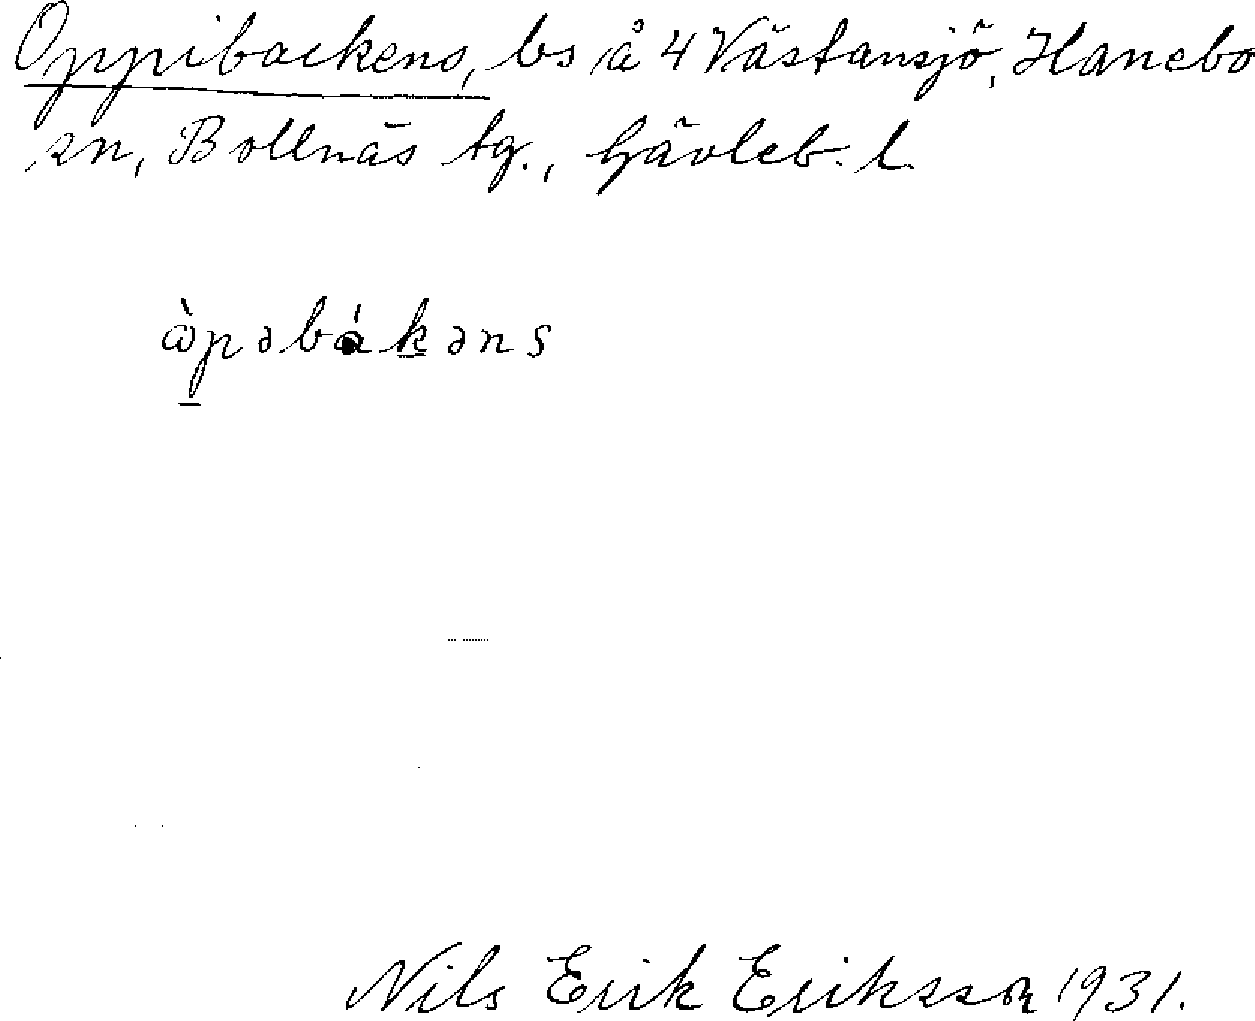 Oppibackens, bs å 4 Västansjö, Hanebo
sn, Bollnäs tg., Gävleb. l.
ὼpəbákəns
Nils Erik Eriksson 1931.